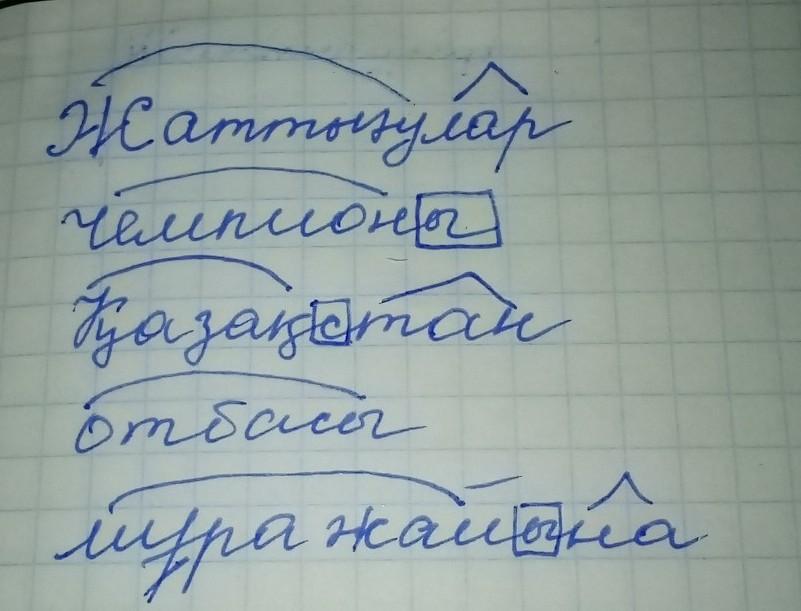 Жаттығулар
чемпионы
Қазақстан
отбасы
мұражайына